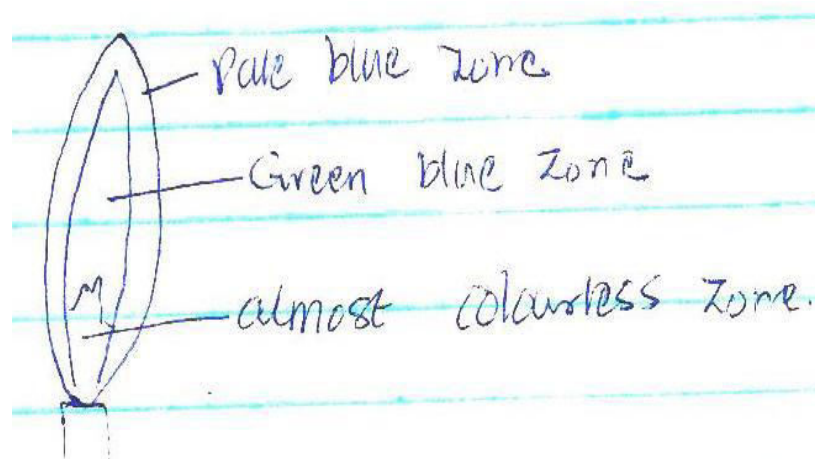 Pale blue zone
Green blue zone
almost colourless zone.